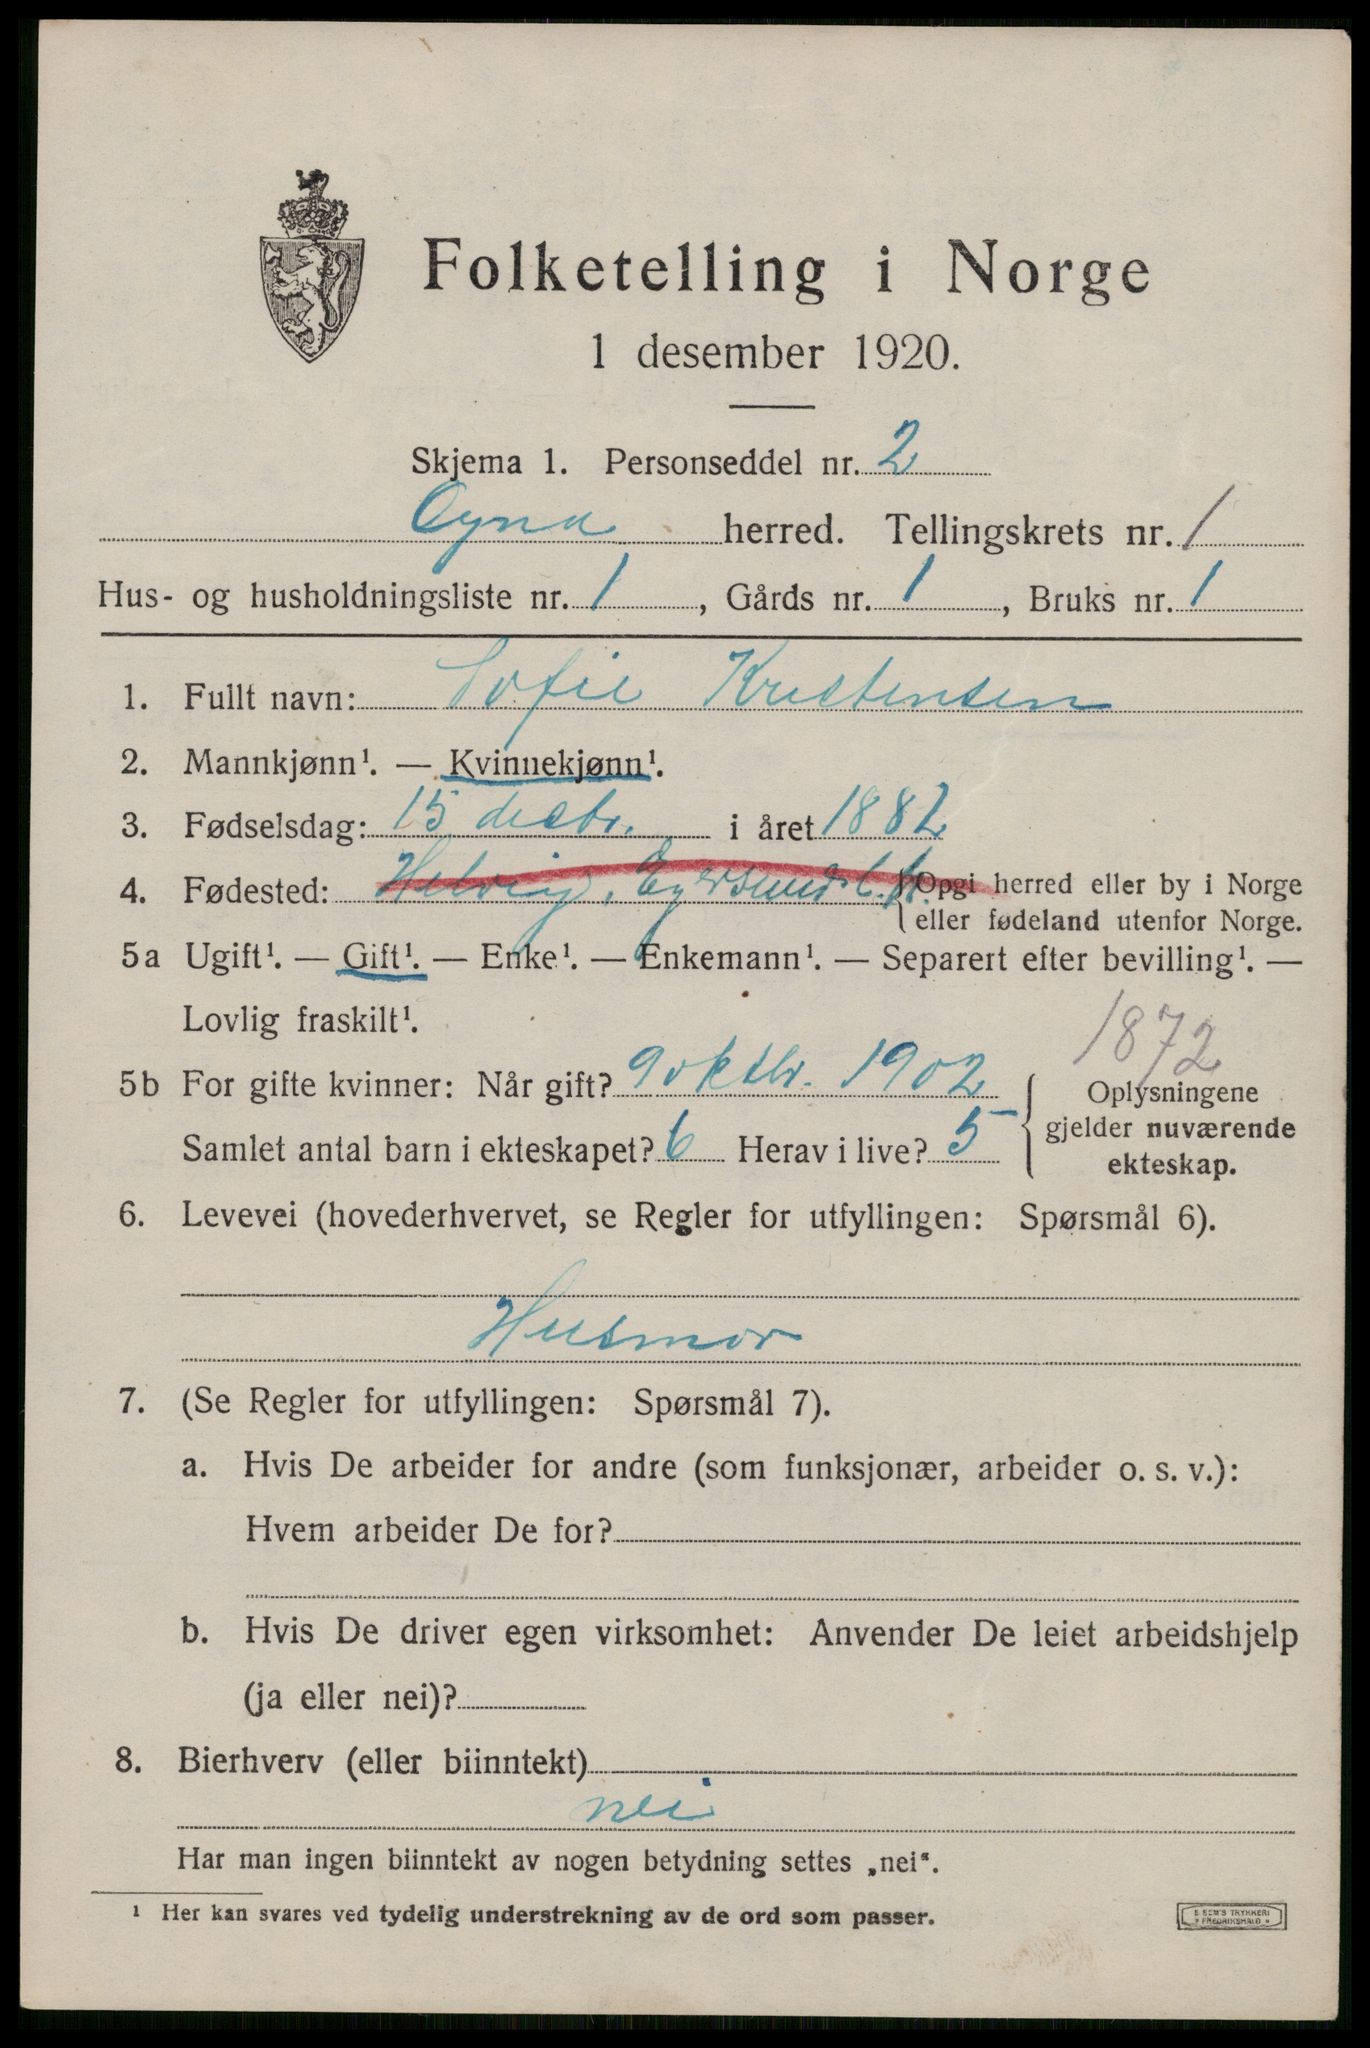 Folketelling i Norge
1 desember 1920.
Skjema 1. Personseddel nr. 2
Ogna herred. Tellingskrets nr. 1
Hus- og husholdningsliste nr. 1, Gårds nr. 1, Bruks nr. 1
1. Fullt navn: Sofie Kristensen
2. Mannkjønn¹. — Kvinnekjønn¹.
3. Fødselsdag: 15 desbr. i året 1882
4. Fødested: Helvig, Egersunds l.h. Opgi herred eller by i Norge
eller fødeland utenfor Norge.
5a Ugift¹. — Gift¹. — Enke¹. — Enkemann¹. — Separert efter bevilling¹. —
Lovlig fraskilt¹.
1872
5b For gifte kvinner: Når gift? 9 oktbr. 1902 Oplysningene
gjelder nuværende
Samlet antal barn i ekteskapet? 6 Herav i live? 5
ekteskap.
6. Levevei (hovederhvervet, se Regler for utfyllingen: Spørsmål 6).
Husmor
7. (Se Regler for utfyllingen: Spørsmål 7).
a. Hvis De arbeider for andre (som funksjonær, arbeider o. s. v.):
Hvem arbeider De for?
b. Hvis De driver egen virksomhet: Anvender De leiet arbeidshjelp
(ja eller nei)?
8. Bierhverv (eller biinntekt)
nei
Har man ingen biinntekt av nogen betydning settes „nei“.
¹ Her kan svares ved tydelig understrekning av de ord som passer.
E SEM'S TRYKKERI
* FREDRIKSHALD *